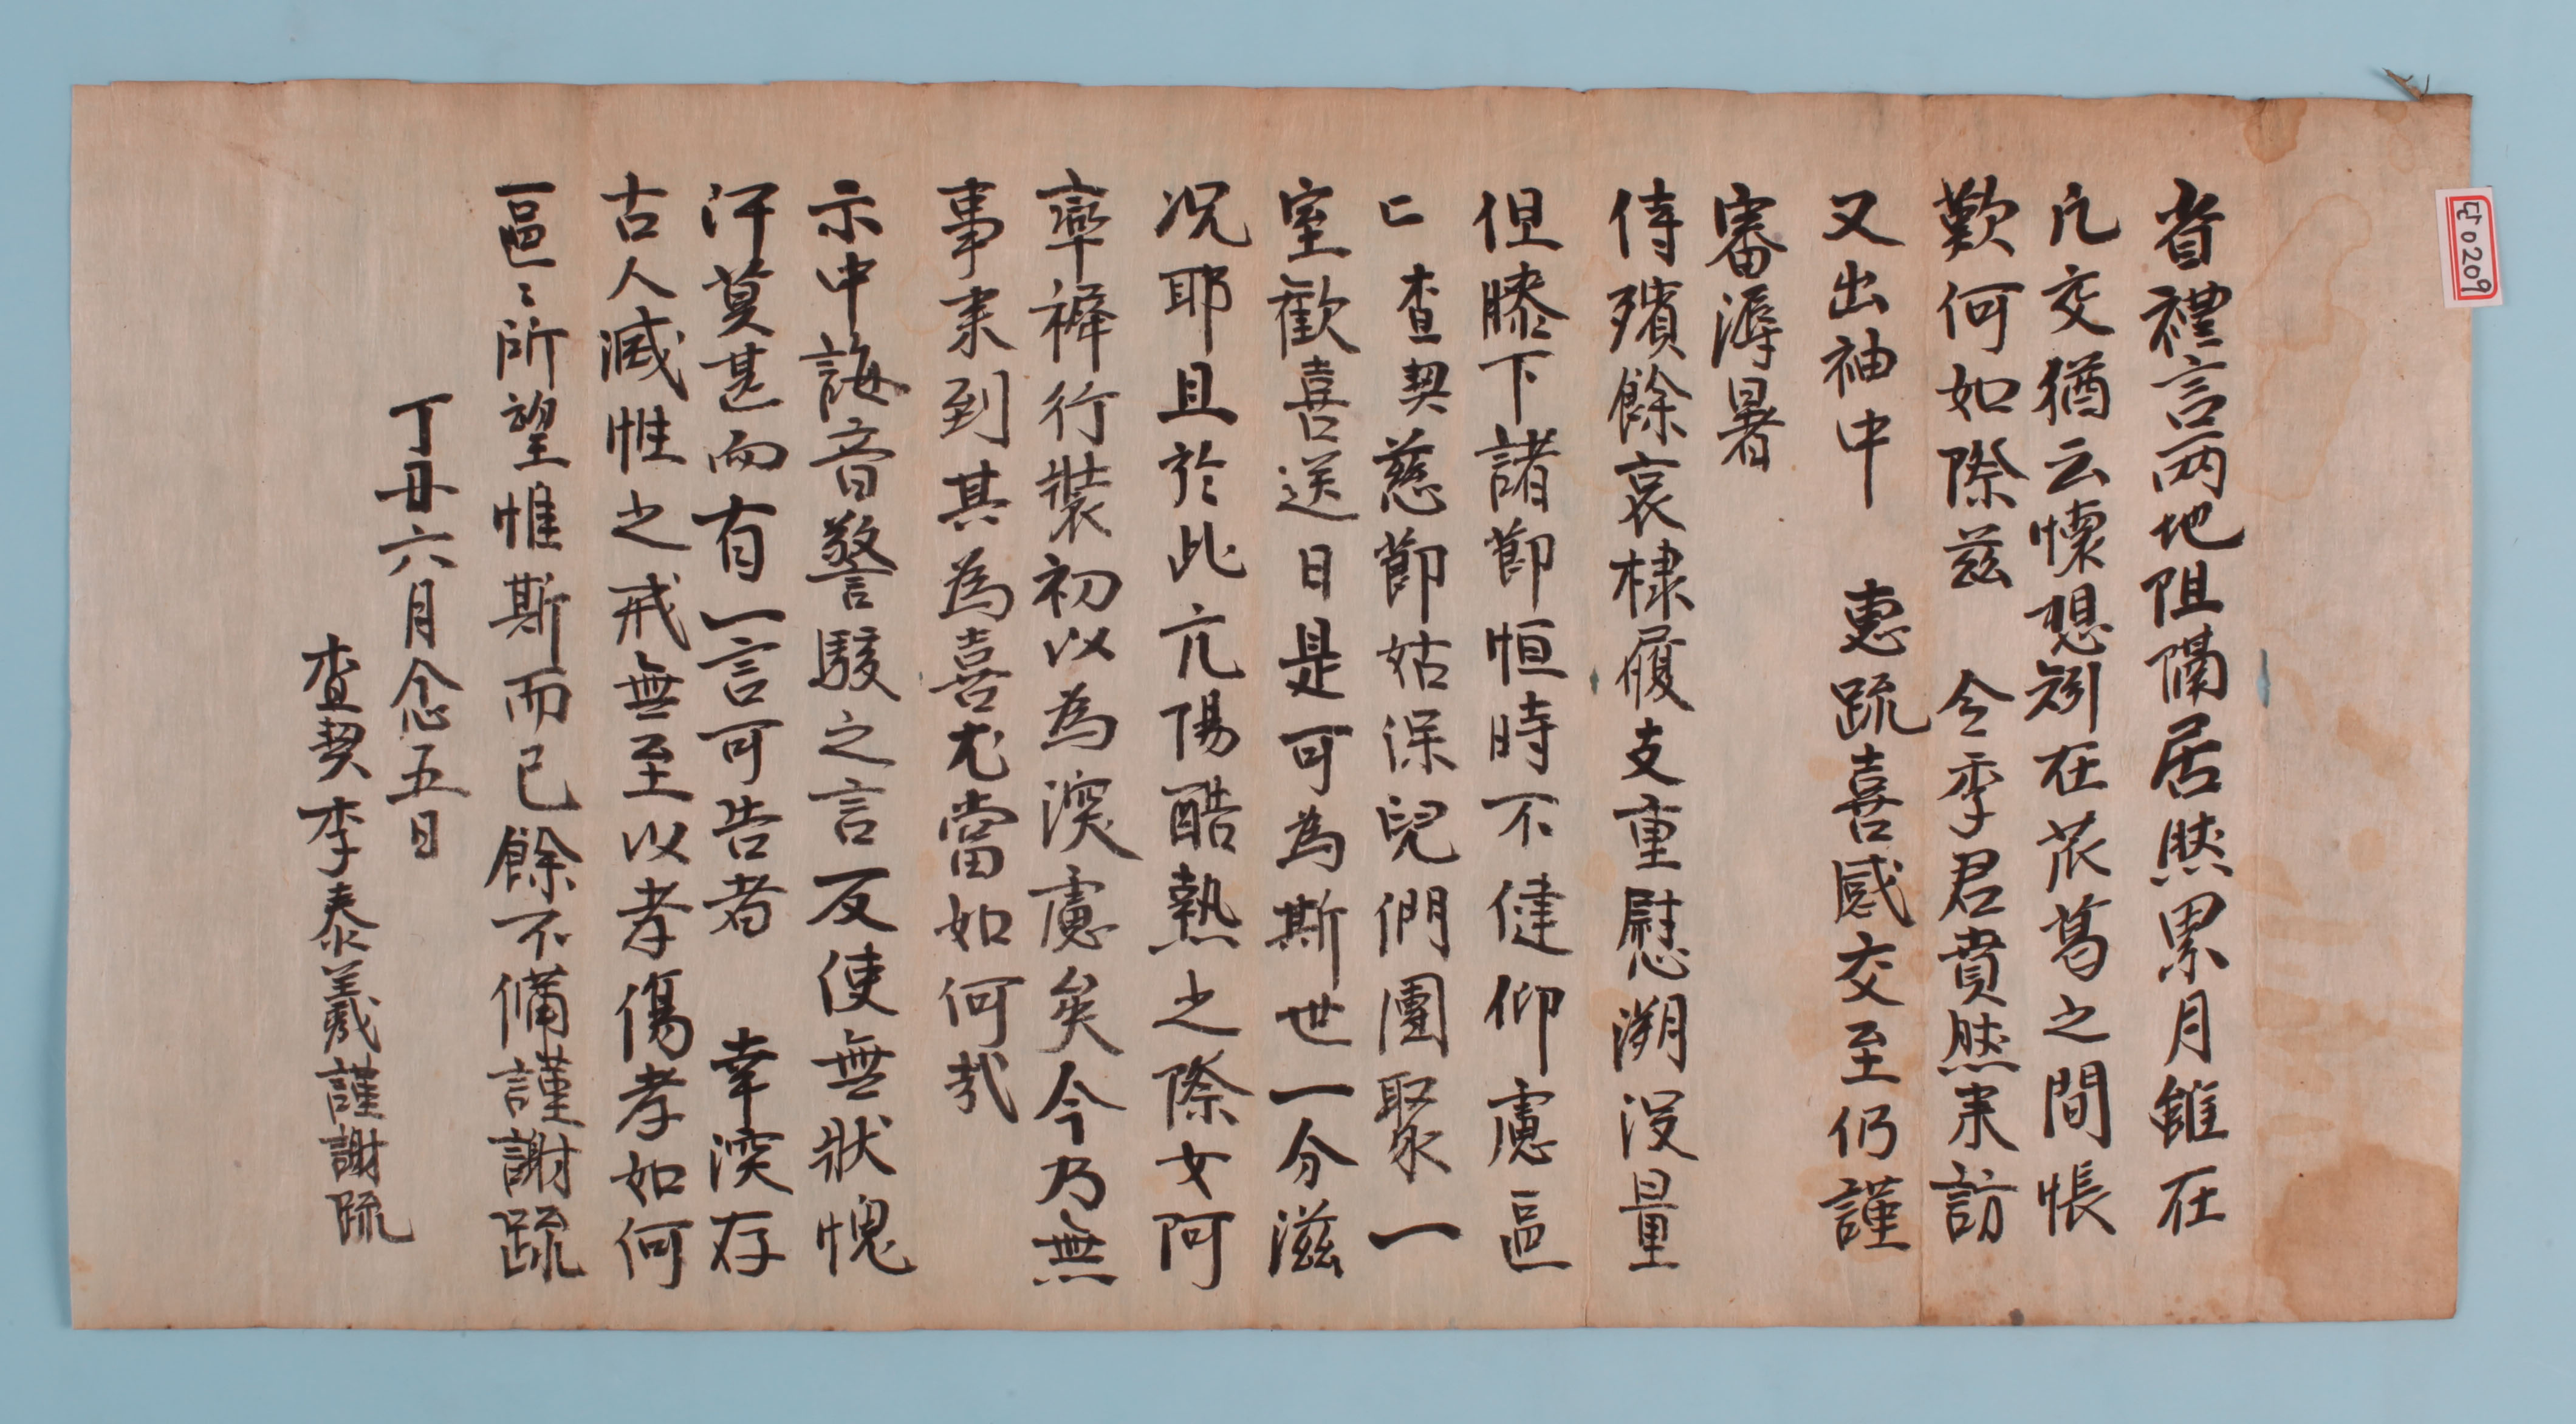 省禮言兩地阻隔居然累月雖在
凡交猶云懷想矧在苽葛之間悵
歎何如際玆 令季君賁然来訪
又出袖中 惠疏喜感交至仍謹
審溽暑
侍殯餘哀棣履支重慰溯沒量
但膝下諸節恒時不健仰慮區
〻 査契慈節姑保兒們團聚一
室歡喜送日是可爲斯世一分滋
况耶且於此亢陽酷熱之際女阿
率褓行裝初以爲深慮矣今乃無
事来到其爲喜尤當如何哉
示中誨音警駭之言反使無狀愧
汗莫甚而有一言可告者 幸深存
古人滅性之戒無至以孝傷孝如何
區〻所望惟斯而已餘不備謹謝疏
丁丑六月念五日
査契李泰羲謹謝疏
단0209